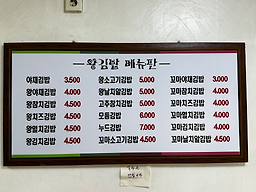 왕김밥 메뉴판
야채김밥 3.500 왕소고기김밥 5.000 꼬마야채김밥 3.000
왕야채김밥 4.000 왕날치김밥 5.000 꼬마참치김밥 4.000
왕참치김밥 4.500 고추참치김밥 5.000 꼬마치즈김밥 4.000
왕치즈김밥 4.500 모듬김밥 6.000 꼬마멸치김밥 4.000
왕멸치김밥 4.500 누드김밥 7.000 꼬마김치김밥 4.000
왕김치김밥 4.500 꼬마소고기김밥 4.500 꼬마날치알김밥 4.500